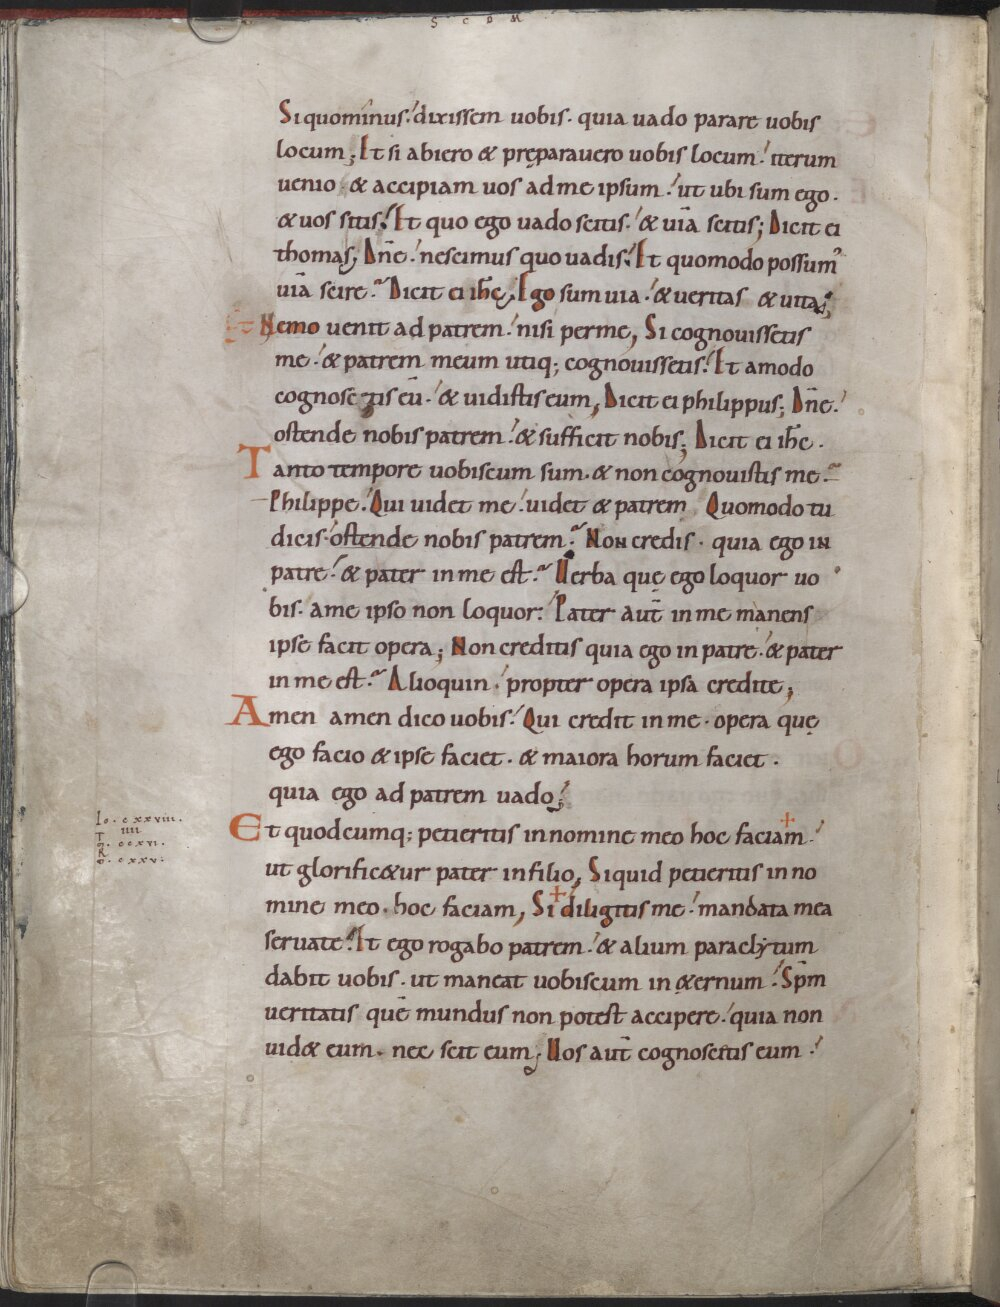 S C D M
Si quominus; dixissem uobis. quia uado parare uobis
locum; Et si abiero & pręparauero uobis locum; iterum
uenio. & accipiam uos ad me ipsum; ut ubi sum ego.
& uos sitis; Et quo ego uado scitis. & uiā scitis; Dicit ei
thomas; Dn̄e; nescimus quo uadis; Et quomodo possum᾽
uiā scire? Dicit ei ih̄c; Ego sum uia; & ueritas & uita;
Nemo uenit ad patrem; nisi per me; Si cognouissetis
me; & patrem meum utiq; cognouissetis; Et amodo
cognoscetis eū; & uidistis eum; Dicit ei philippus; Dn̄e;
ostende nobis patrem; & sufficit nobis; Dicit ei ih̄c.
Tanto tempore uobiscum sum. & non cognouistis me?
Philippe; Qui uidet me; uidet & patrem Quomodo tu
dicis; ostende nobis patrem? Non credis. quia ego in
patre; & pater in me est? Uerba quę ego loquor uo
bis. a me ipso non loquor; Pater aut̄ in me manens
ipse facit opera; Non creditis quia ego in patre; & pater
in me est? Alioquin; propter opera ipsa credite;
Amen amen dico uobis; Qui credit in me. opera quę
ego facio & ipse faciet. & maiora horum faciet.
quia ego ad patrem uado;
Io. cxxviii.
IIII
Et quodcumq; petieritis in nomine meo hoc faciam;
ut glorific&ur pater in filio; Si quid petieritis in no
mine meo. hoc faciam; Si diligitis me; mandata mea
seruate; Et ego rogabo patrem; & alium paraclytum
dabit uobis. ut maneat uobiscum in &ernum; Sp̄m
ueritatis quē mundus non potest accipere; quia non
uid& eum. nec scit eum; Uos aut̄ cognoscetis eum;